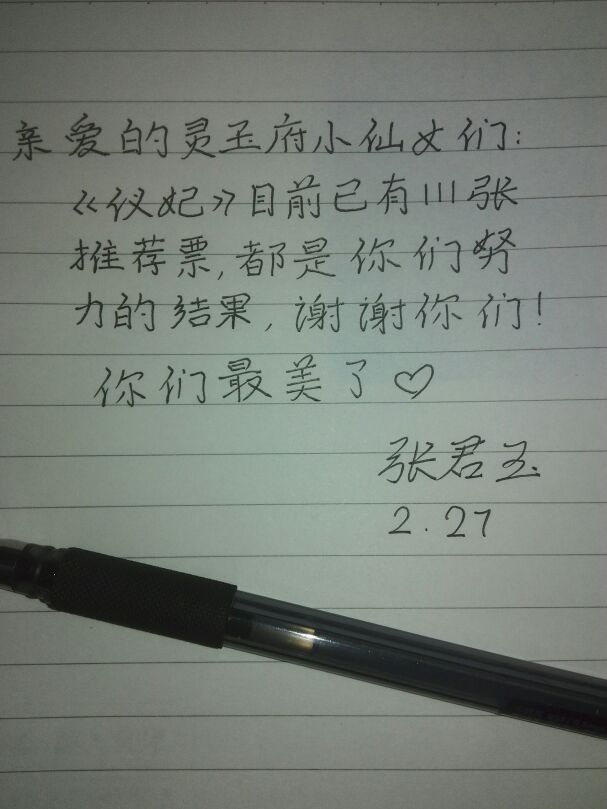 亲爱的灵玉府小仙女们:
《仪妃》目前已有111张
推荐票,都是你们努
力的结果,谢谢你们!
你们最美了♡
张君玉
2.27